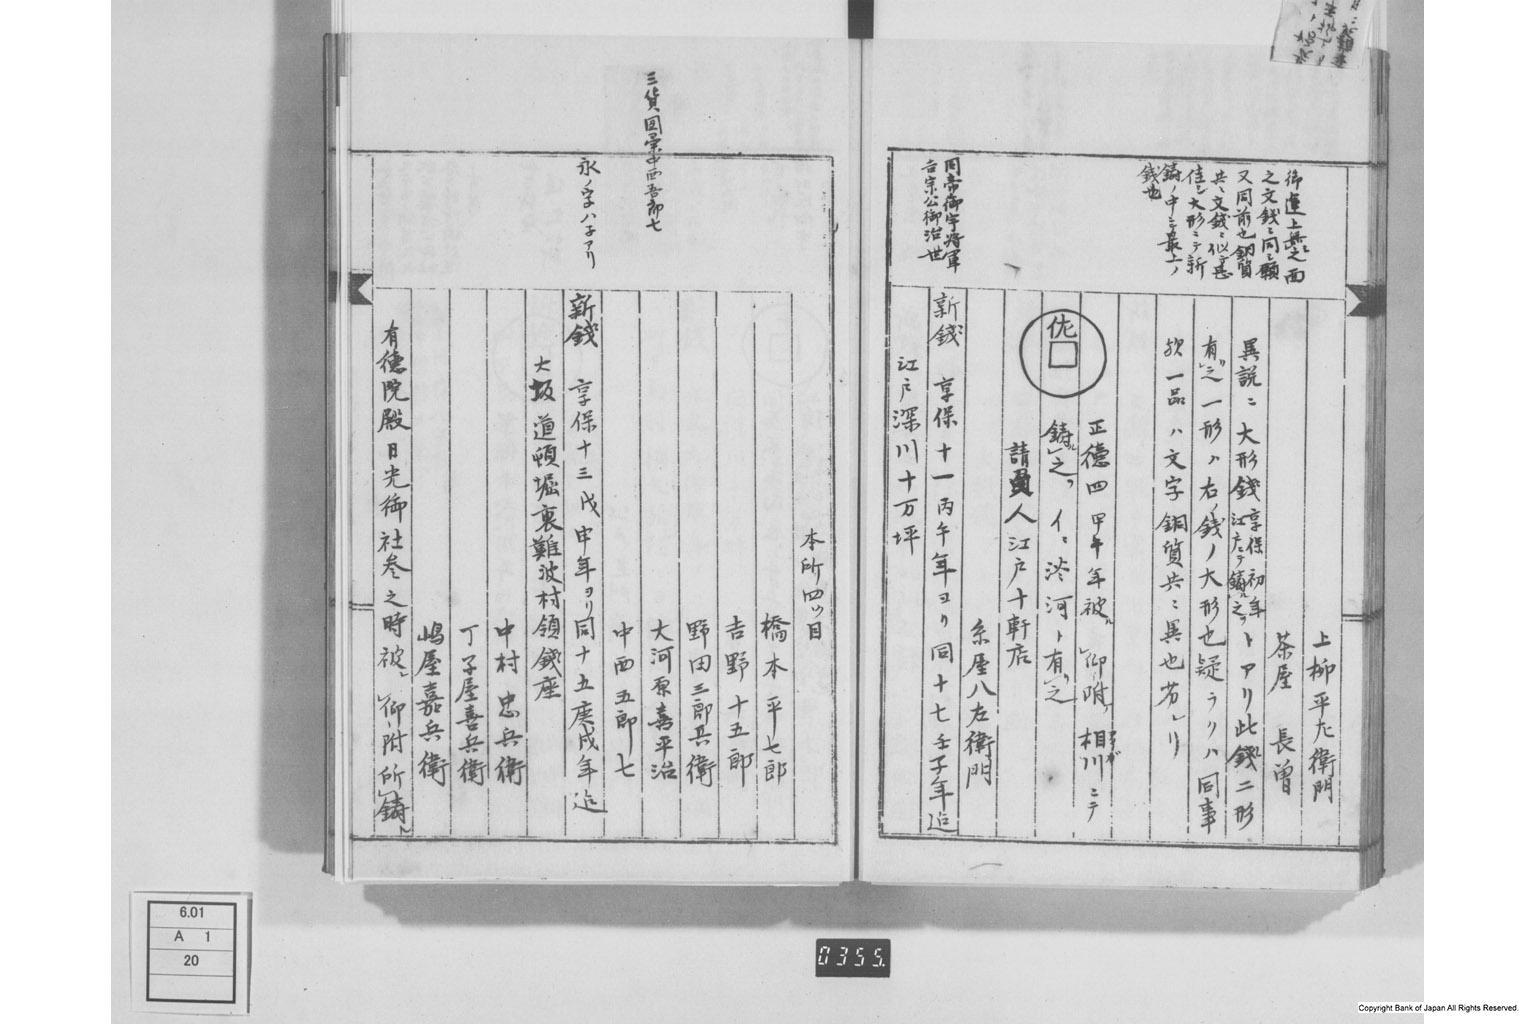 御運上無之面
之文銭ニ同シ
又同前也銅質
共ニ文銭ニ似
佳シ大形ニテ新
鋳ノ中ニ最上ノ
銭也
上柳平左衛門
茶屋 長曽
異説ニ大形銭享保初年江戸ニテ鋳ル之ヲトアリ此銭二形
有リ之一形ハ右ノ銭ノ大形也疑ラクハ同事
欤一品ハ文字銅質共ニ異也
佐
正徳四甲午年被仰附相川ニテ
鋳ル之ヲ イニ渋河ト有リ之
請負人江戸十軒店
糸屋八左衛門
同帝御宇将軍
吉宗公御治世
新銭 享保十一丙午年ヨリ同十七壬子年迄
江戸深川十万坪
本所四ツ目
橋本平七郎
吉野十五郎
野田三郎兵衛
大河原嘉平治
三貨図彙中西吾郎七
中西五郎七
永ノ字ハネアリ
新銭 享保十三戊申年ヨリ同十五庚戌年迄
大坂道頓堀裏難波村領銭座
中村忠兵衛
丁子屋喜兵衛
嶋屋嘉兵衛
有徳院殿日光御社参之時被仰附所鋳
0355.
6.01
A 1
20
Copyright Bank of Japan All Rights Reserved.